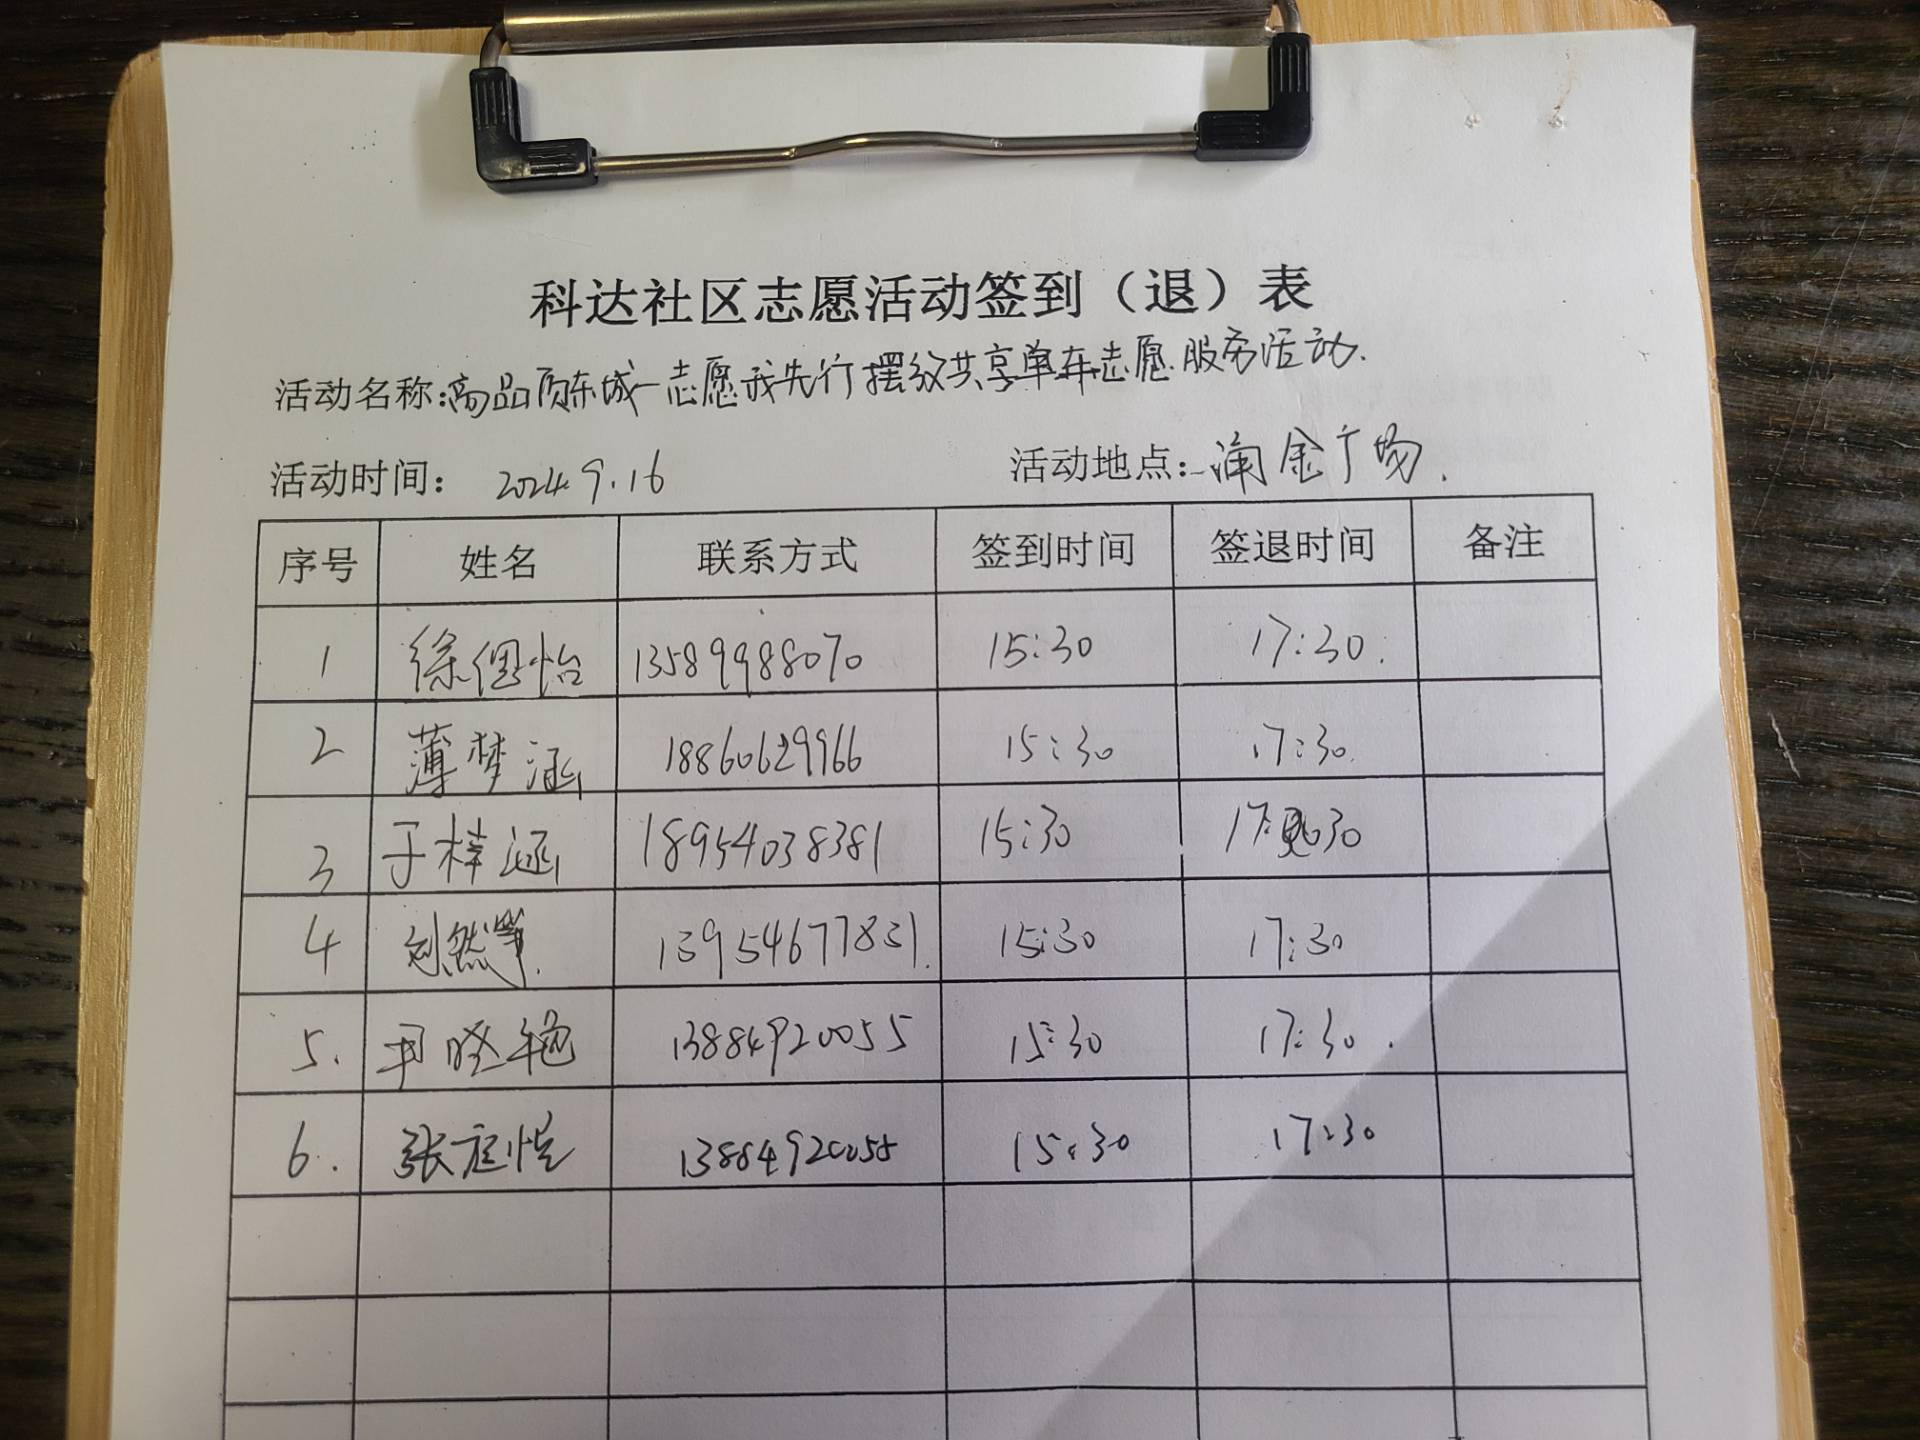 科达社区志愿活动签到（退）表
活动名称：高品质东城—志愿我先行摆放共享单车志愿服务活动.
活动时间： 2024.9.16 活动地点： 淘金广场.
序号 姓名 联系方式 签到时间 签退时间 备注
1 徐偲怡 13589988070 15:30 17:30.
2 薄梦涵 18860629966 15:30 17:30.
3 于梓涵 18954038381 15:30 17:30
4 刘然 13954677831. 15:30 17:30
5. 尹晓艳 13884920055 15:30 17:30.
6. 张庭悦 13884920055 15:30 17:30